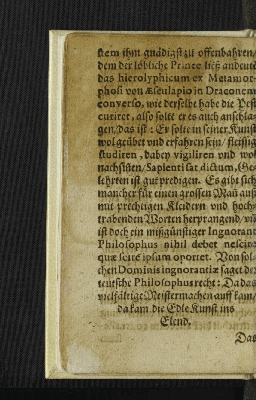 stem ihm gnädigst zu offenbahren/
dem der löbliche Prince ließ andeute
das hierolyphicum ex Metamor-
phosi von Æsculapio in Draconem
converso, wie derselbe habe die Pest
curiret, also solte er es auch anschla-
gen/das ist: Er solte in seiner Kunst
wol geübet und erfahren sein/ fleissig
studiren, dabey vigiliren und wol
nachsinnen/Sapienti sat dictum, Ge-
lehrten ist gut predigen. Es gibt sich
mancher für einen grossen Man auß
mit prechtigen Kleidern und hoch-
trabenden Worten herprangend, wü
ist doch ein mißgünstiger Ingnorant
Philosophus nihil debet nescire
quæ scire ipsum oportet. Von sol-
chen Dominis ingnorantiæ saget der
teutsche Philosophus recht: Da das
vielfältige Meistermachen auff kam/
da kam die Edle Kunst ins
Elend.
Das